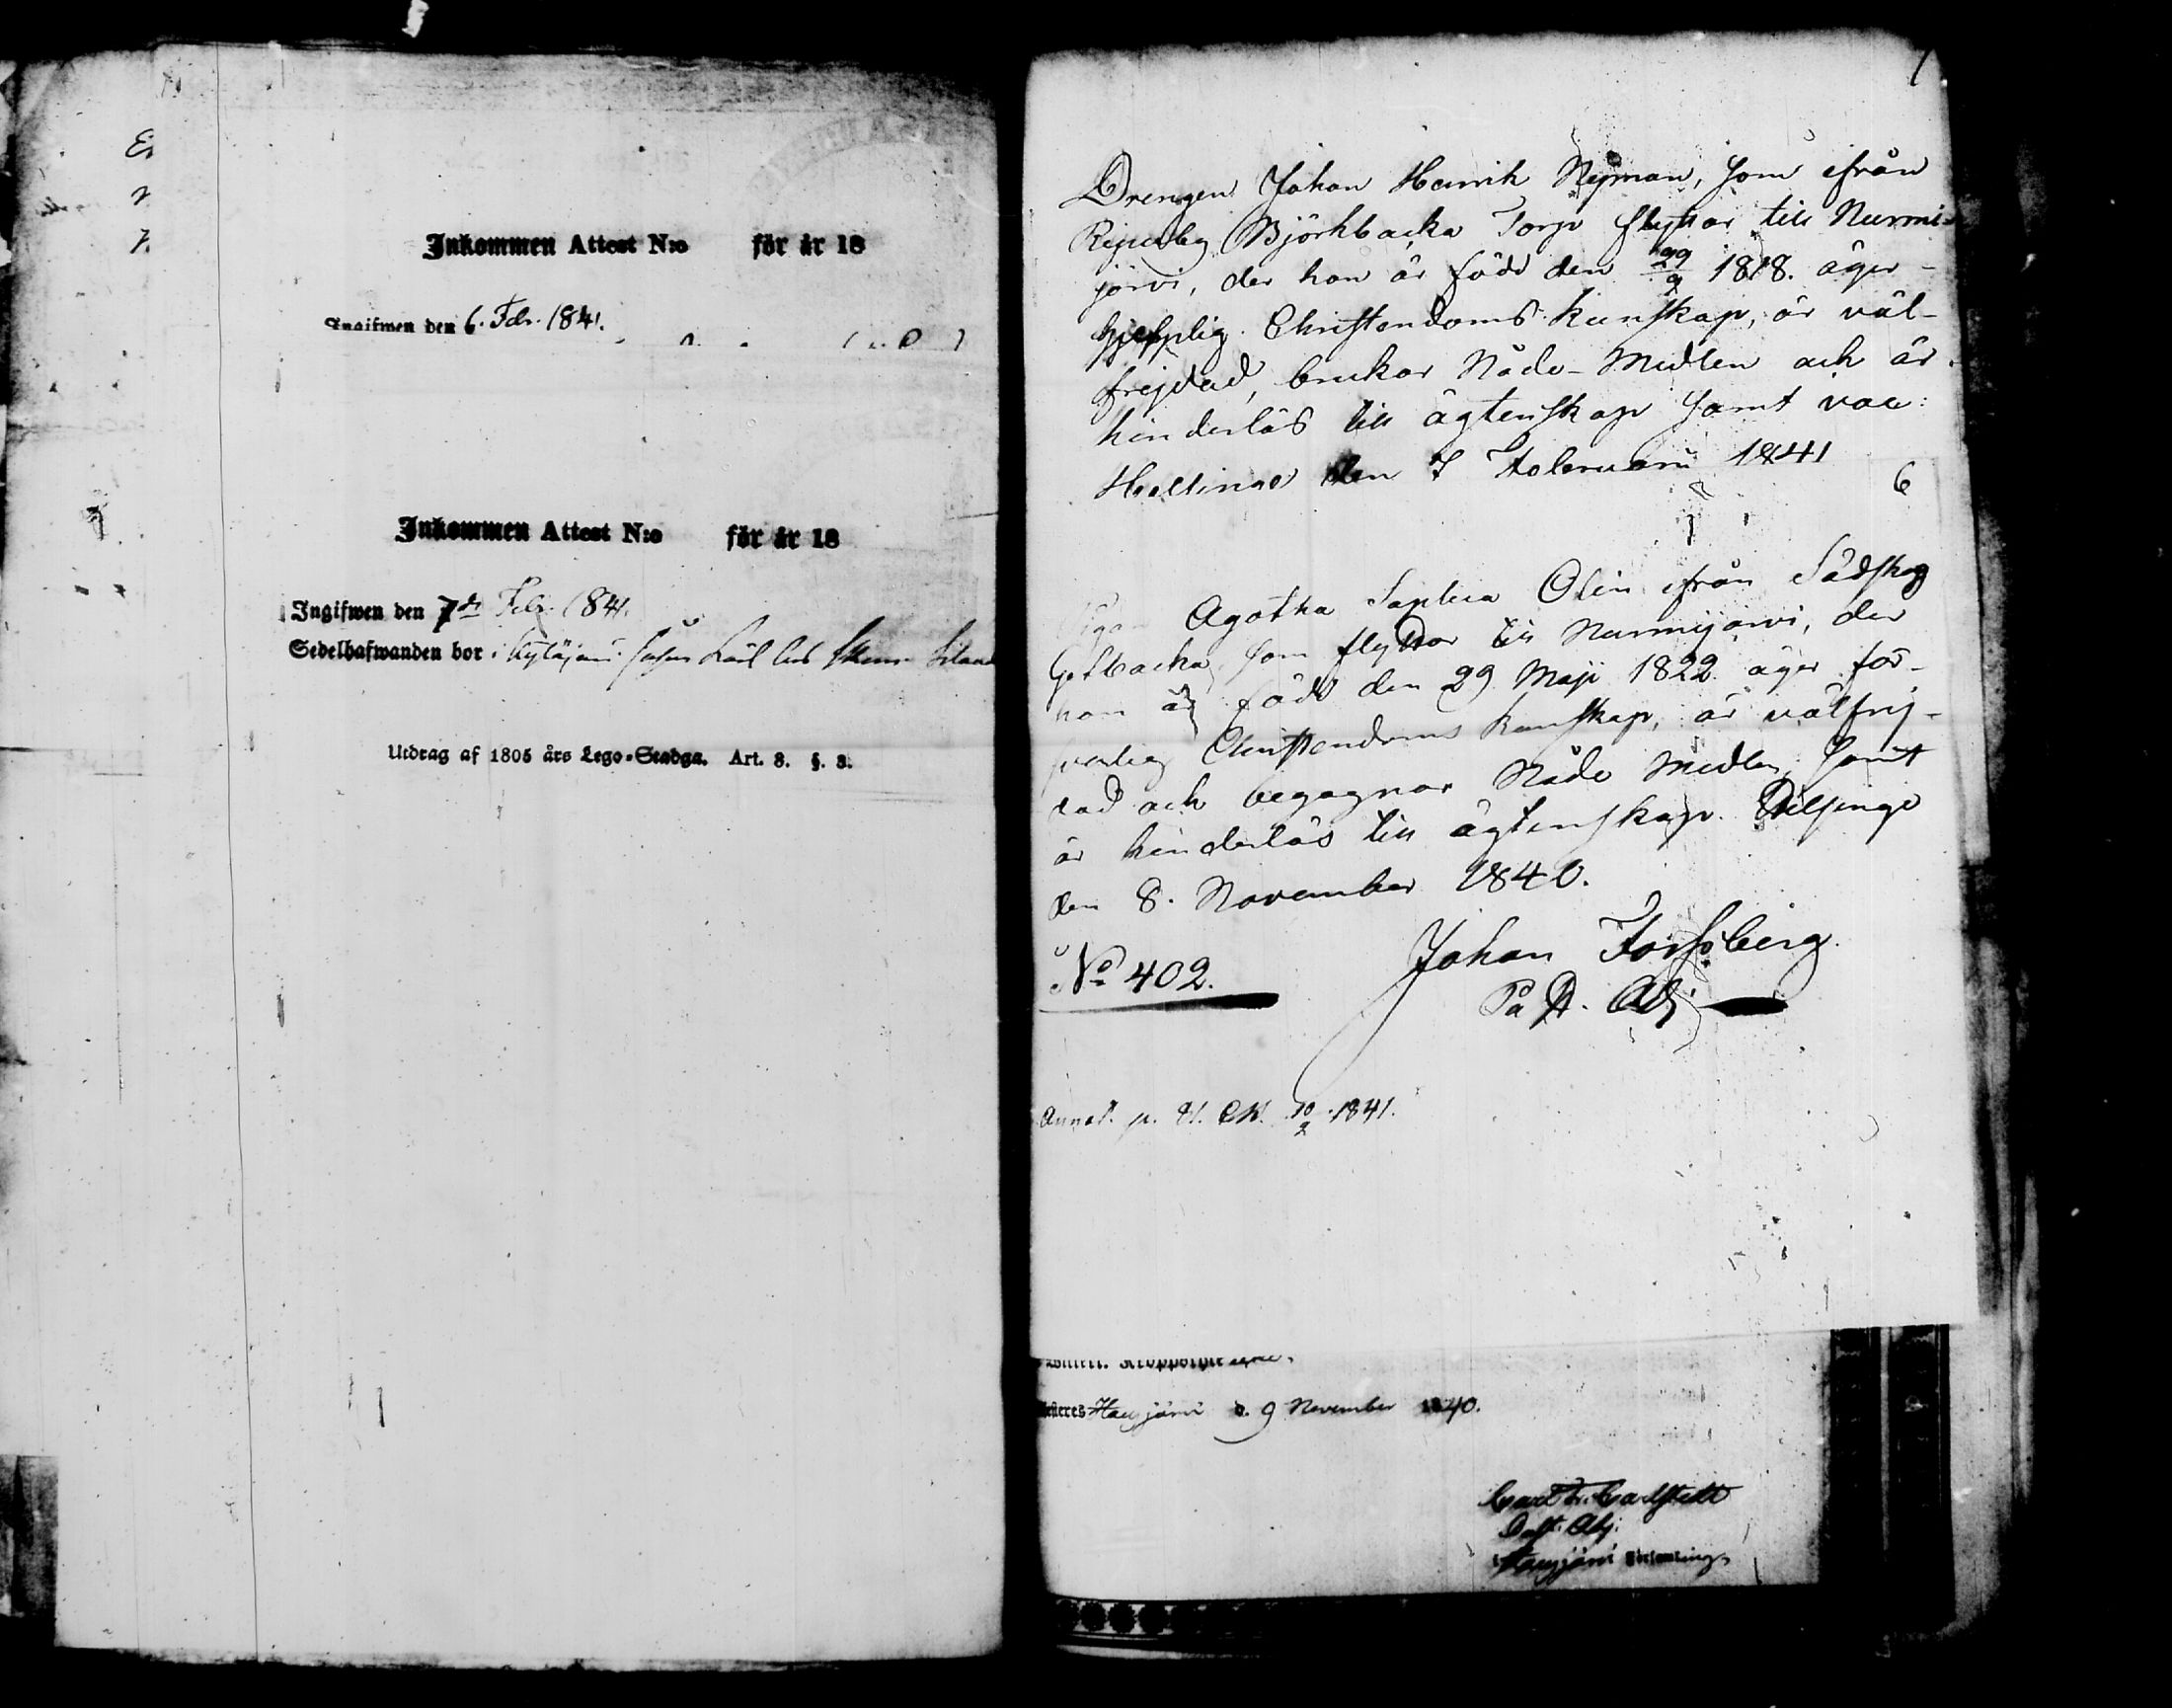 Inkommen Attest N:o för år 18
Ingifwen den 6. Febr. 1841.
Inkommen Attest N:o för år 18
Ingifwen den 7de Febr. 1841.
Sedelhafwanden bor i
Utdrag af 1805 års Lego-Stadga. Art. 8. §. 8.
1
Drengen Johan Henrik Nyman, som ifrån
Björkbacka Torp flyttar till Nurmi-
järvi, der han är född den 29/9 1818. äger
Christendoms kunskap, är väl-
frejdad, brukar Nåde-Medlen och är
hinderlös till ägtenskap samt vac:
Helsinge den 7 Februarii 1841
6
Pigan Agatha Sophia Olin ifrån
som flyttar till Nurmijärvi, der
hon är född den 29 Maji 1822 äger för-
svarlig Christendoms kunskap, är välfrej-
dad och begagnar Nåde Medlen, samt
är hinderlös till ägtenskap. Helsinge
den 8. November 1840.
Johan Forssberg.
No 402.
Past. Adj.
Annot. p. 81. 10/2 1841.
Hausjärvi d. 9 November 1840.
Carl Fr. Carlstedt
Past. Adj.
i Hausjärvi Församling.